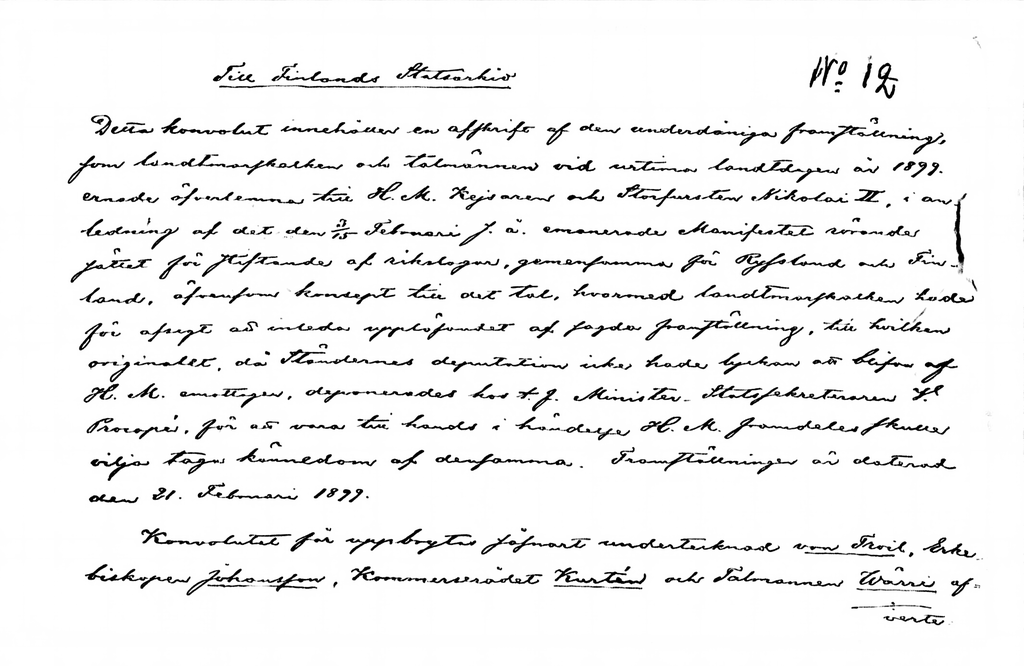 Till Finlands Statsarkiv
No 12
Detta konvolut innehåller en afskrift af den underdåniga framställning,
som landtmarskalken och talmännen vid urtima landtdagen år 1899.
ernade öfverlemna till H. M. Kejsaren och Storfursten Nikolai II, i an-
ledning af det den 3/15 Februari s. å. emanerade Manifestet rörande
sättet för stiftande af rikslagar, gemensamma för Ryssland och Fin-
land, äfvensom konsept till det tal, hvarmed landtmarskalken hade
för afsigt att inleda uppläsandet af sagda framställning, till hvilken
originalet, då Ständernes deputation icke hade lyckan att blifva af
H. M. emottagen, deponerades hos t. f. Minister-Statssekreteraren
Procopé, för att vara till hands i händelse H. M. framdeles skulle
vilja taga kännedom af densamma. Framställningen är daterad
den 21. Februari 1899.
Konvolutet får uppbrytas såsnart undertecknad von Troil, Erke-
biskopen Johansson, Kommerserådet Kurtén och Talmannen Wärri af-
verte